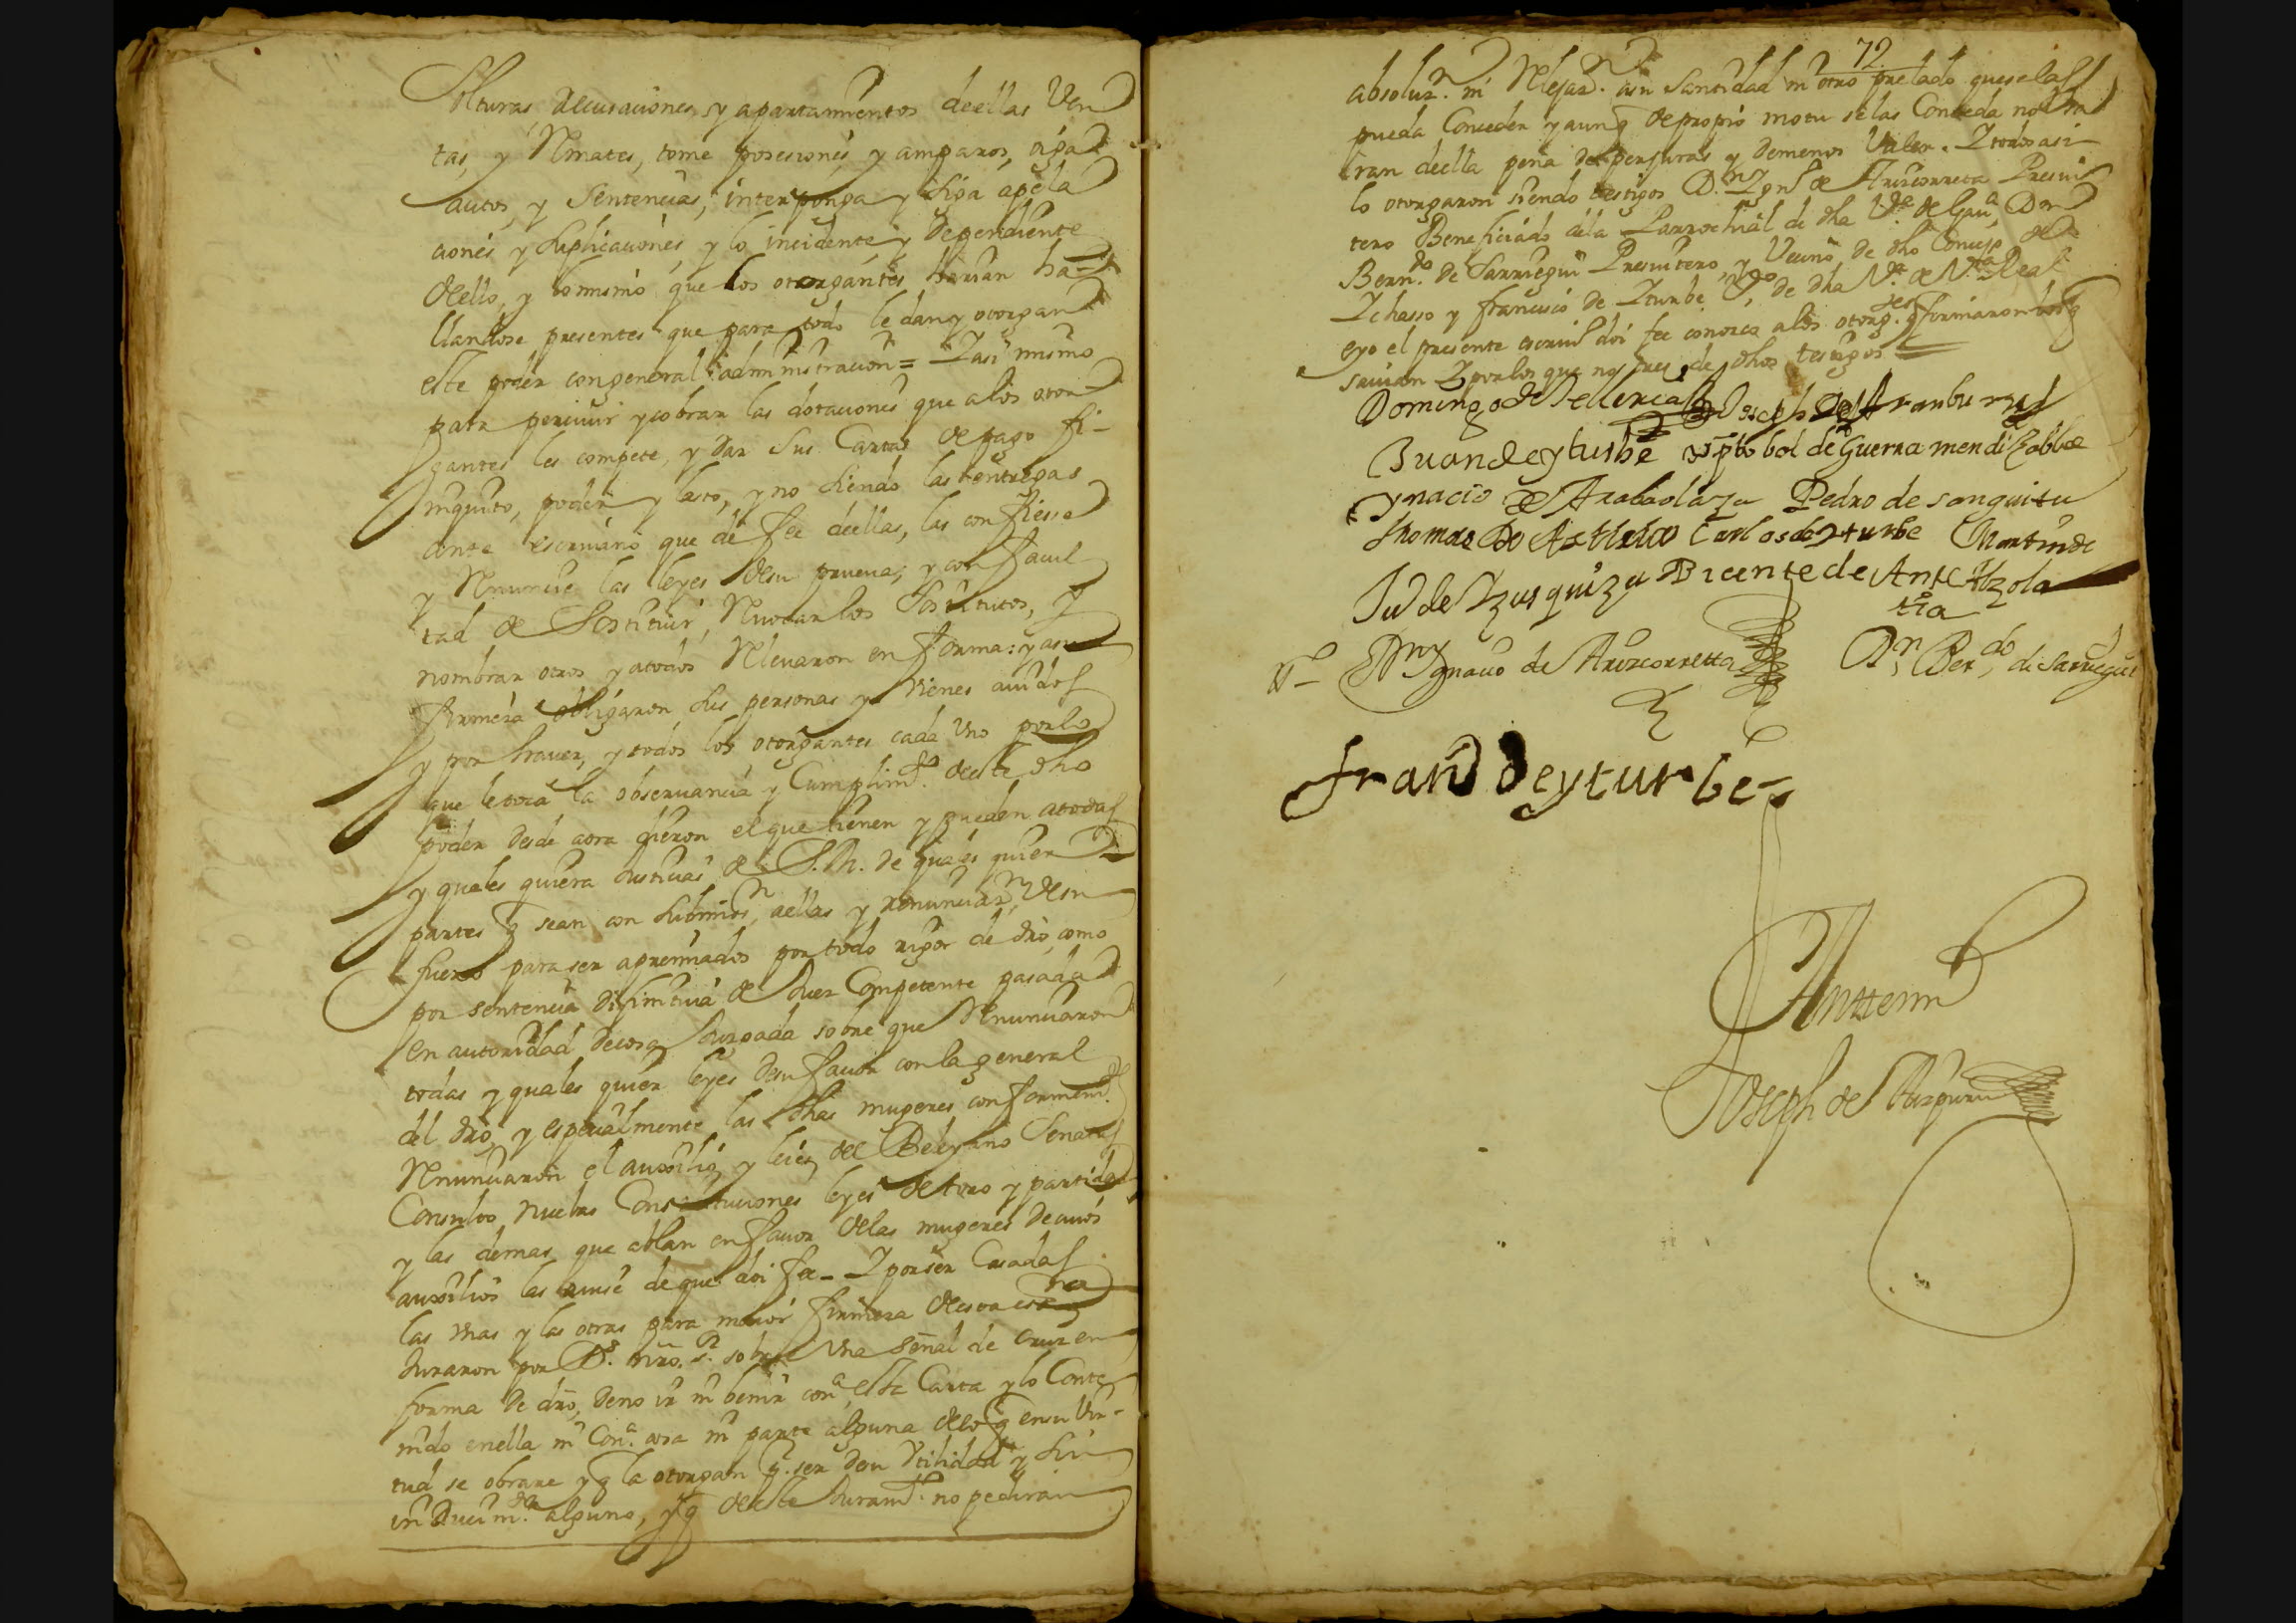 solturas, Recusaciones, y apartamientos deellas Ven
tas, y Remates, tome posesiones, y amparos, oiga
autos, y sentencias, interponga y siga apela
ciones y suplicaciones, y lo incidente, y dependiente
dello, y lo mismo que los otorgantes harian ha-
llandose presentes que para todo le dan y otorgan
este poder con general administracion = Y asi mismo
para perciuir y cobrar las dotaciones que a los otor
gantes les compete, y dar sus Cartas de pago fi-
niquito, poder y lasto, y no siendo las entregas
ante escriuano que dé fee deellas, las confiesse
y Renuncie las leyes desu prueua; y con facul
tad de Sostituir, Reuocar los Sostitutos, y
nombrar otros y atodos Releuaron en forma: y asu
firmeza obligaron sus personas y vienes auidos
y por hauer, y todos los otorgantes cada Uno por lo
que le toca la obseruancia y Cumplim.to deeste dho
poder desde aora dieron el que tienen y pueden atodas
y quales quiera Justicias de S. M. de quales quier
partes q sean con submiss.n aellas y renunciaz.n desu
fuero para ser apremiados por todo rigor de dro, como
por sentencia difinitiua de Juez Competente pasada
en autoridad decosa Juzgada sobre que Renunciaron
todas y quales quier leyes desu fauor con la general
del dro, y especialmente las dhas mugeres conformem.te
Renunciaron el auxilio y leies del Beleyano Senatus
Consulto nuebas Constituciones leyes de toro y partida
y las demas que ablan en fauor delas mugeres decuios
auxilios las auise de que doi fee – Y por ser Casadas
las Unas y las otras para maior firmeza desta escra
Juraron por D.s nro. S.r sobre Una señal de cruz en
forma de dro, deno ir ni benir con.a esta Carta y lo Conte
nido enella ni Con.a cosa ni parte alguna delo q ensu Vir-
tud se obrare y q la otorgan p.r ser desu Utilidad y sin
alguno, y q deeste Juram.to no pediran
72
absoluz.n ni Relajaz.n asu Santidad ni otro prelado queselas
pueda Conceder y aunq de propio motu se las Conceda no Usa
ran deella pena de perjuras y demenos Valer. Y todos asi
lo otorgaron siendo testigos D.n Ygn.o de Arizcorreta Presui
tero Beneficiado dela Parrochial de dha V.a de Gaui.a, Don
Bern.do de Sarruegui Presuitero y Vecino de dho Concejo de
Ychasso y francisco de Yturbe V.o de dha V.a de V.a Real
eyo el presente escriu.o doi fee conozco alos otorg.tes firmaron los q
sauian Y por los que no, tres de dhos testigos
Domingo de Telleria Joseph de Aramburu
Juan de yturbe xptobal de Guerra mendizabal
ygnacio de Arabaolaza Pedro de sanguitu
thomas Do Carlos de Yturbe Martin de
Ju de Yzusquiza Bicente de
N– D.n Ygnacio de Arizcorretta D.n Ber.do de Sarruegui
fran.co de yturbe
Antemi
Joseph de Aizpuru